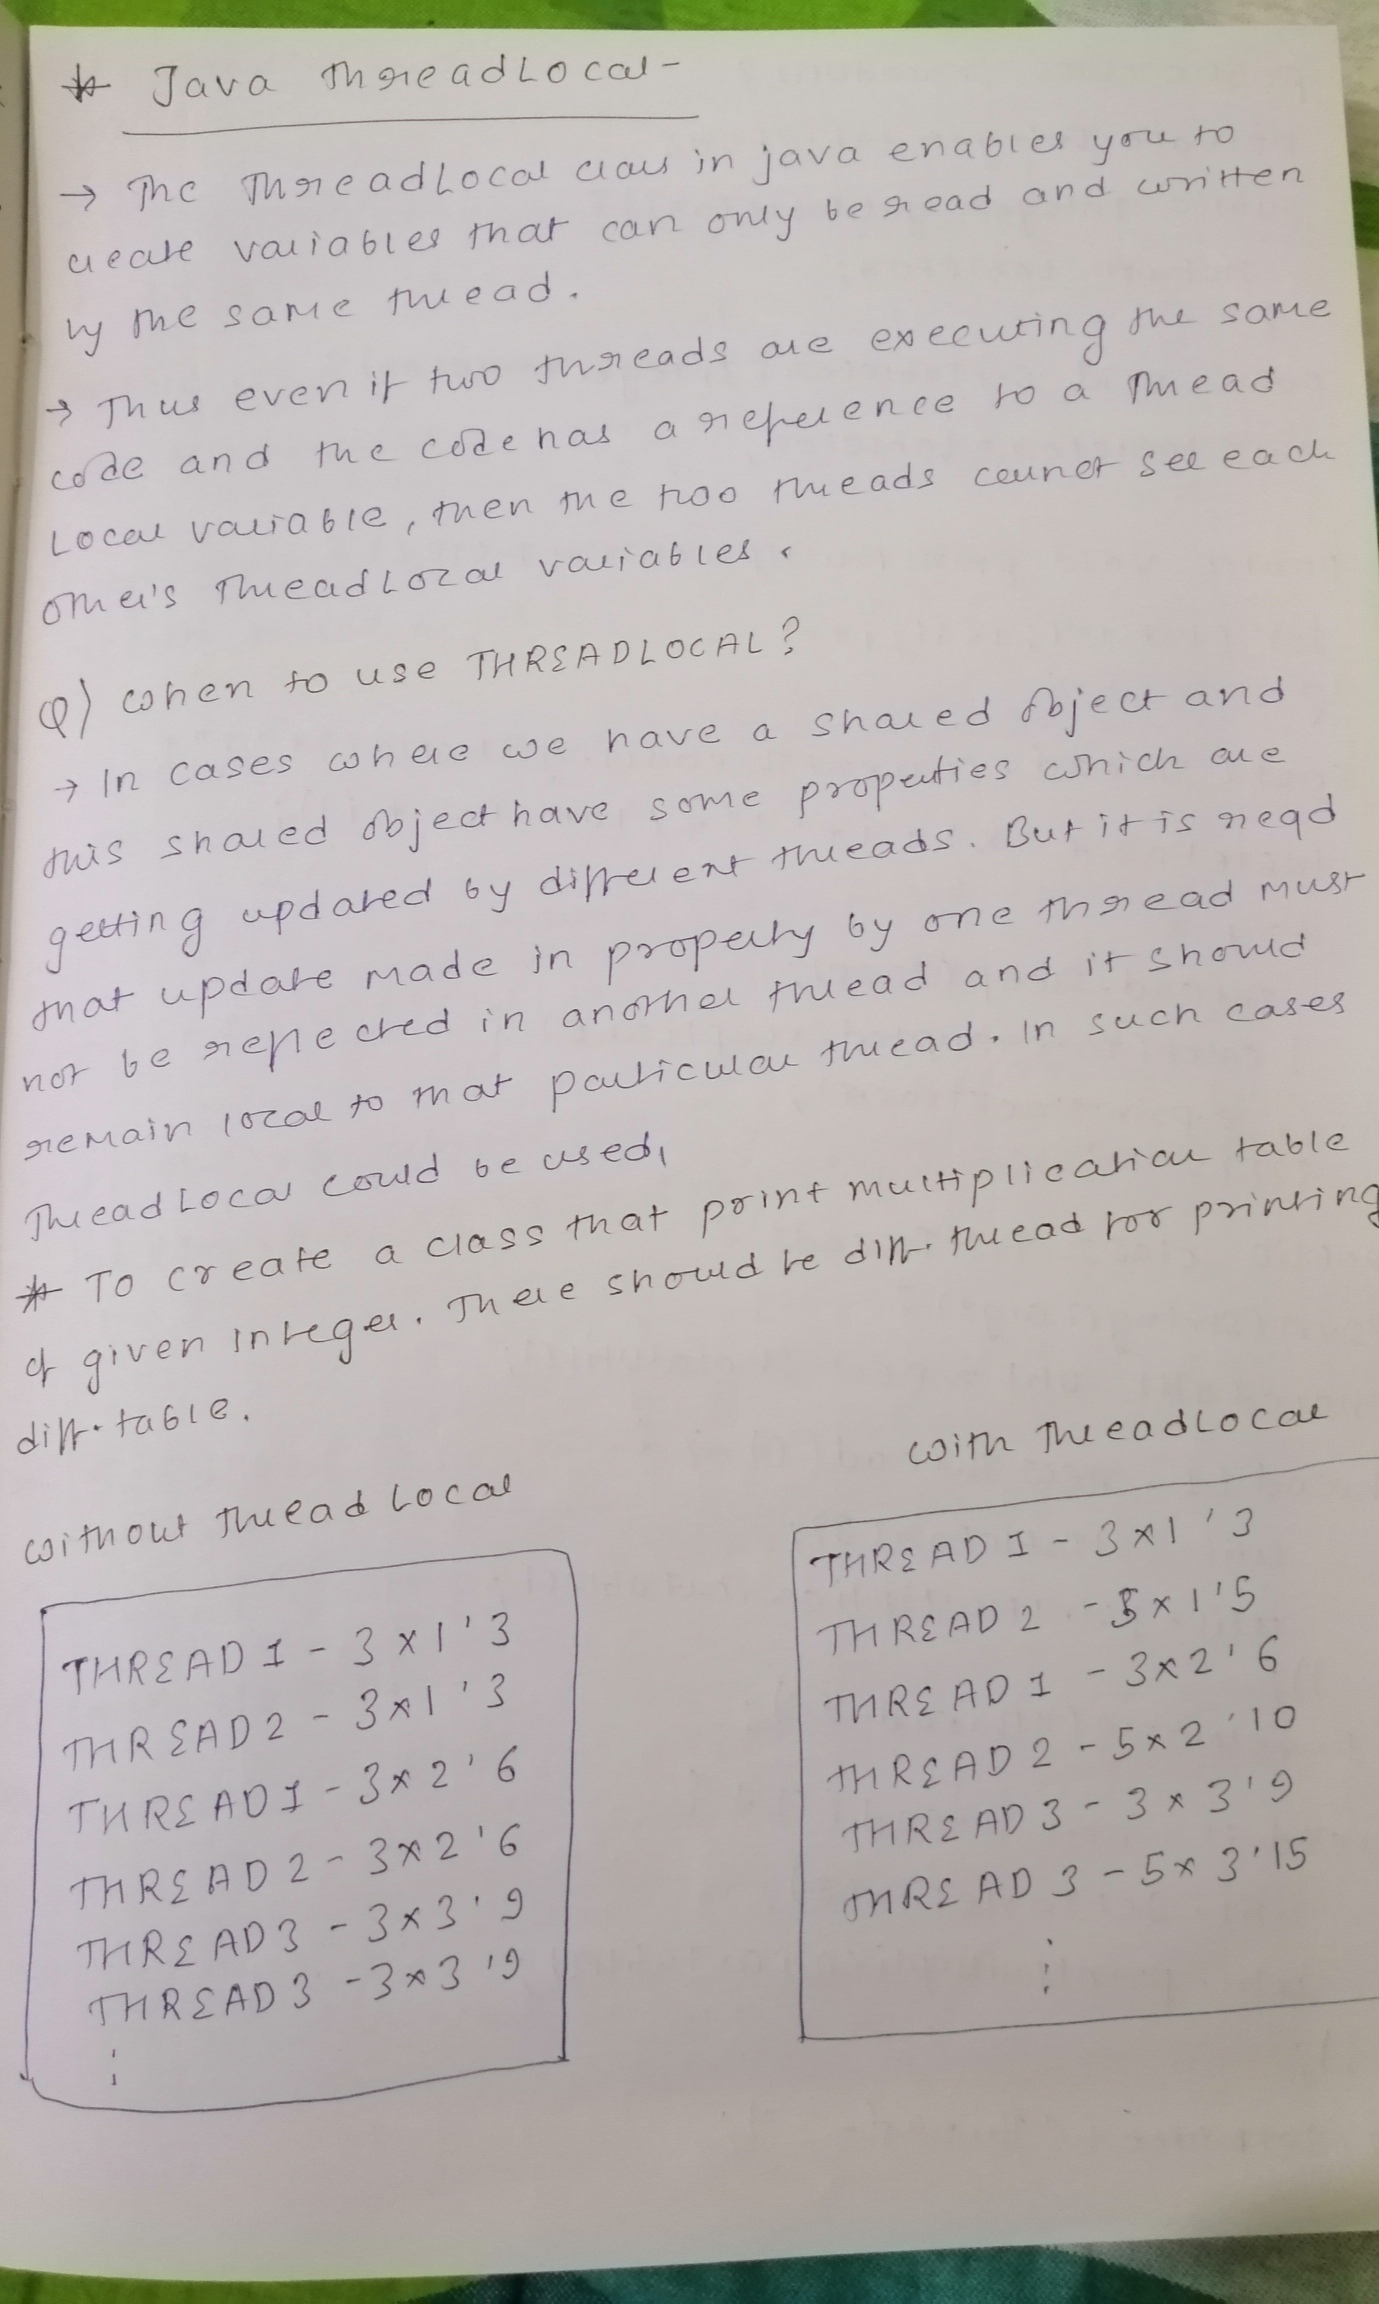 * Java ThreadLocal -
→ The ThreadLocal class in java enables you to
create variables that can only be read and written
by the same thread.
→ Thus even if two threads are executing the same
code and the code has a reference to a Thread
Local variable, then the two threads cannot see each
other's ThreadLocal variables.
Q) When to use THREADLOCAL?
→ In cases where we have a shared object and
this shared object have some properties which are
getting updated by different threads. But it is reqd
that update made in property by one thread must
not be reflected in another thread and it should
remain local to that particular thread. In such cases
ThreadLocal could be used,
* To create a class that print multiplication table
of given Integer. There should be diff. thread for printing
diff. table.
Without Thread Local
THREAD 1 - 3 x 1 ' 3
THREAD 2 - 3 x 1 ' 3
THREAD 1 - 3 x 2 ' 6
THREAD 2 - 3 x 2 ' 6
THREAD 3 - 3 x 3 ' 9
THREAD 3 - 3 x 3 ' 9
With ThreadLocal
THREAD 1 - 3 x 1 ' 3
THREAD 2 - 5 x 1 ' 5
THREAD 1 - 3 x 2 ' 6
THREAD 2 - 5 x 2 ' 10
THREAD 3 - 3 x 3 ' 9
THREAD 3 - 5 x 3 ' 15